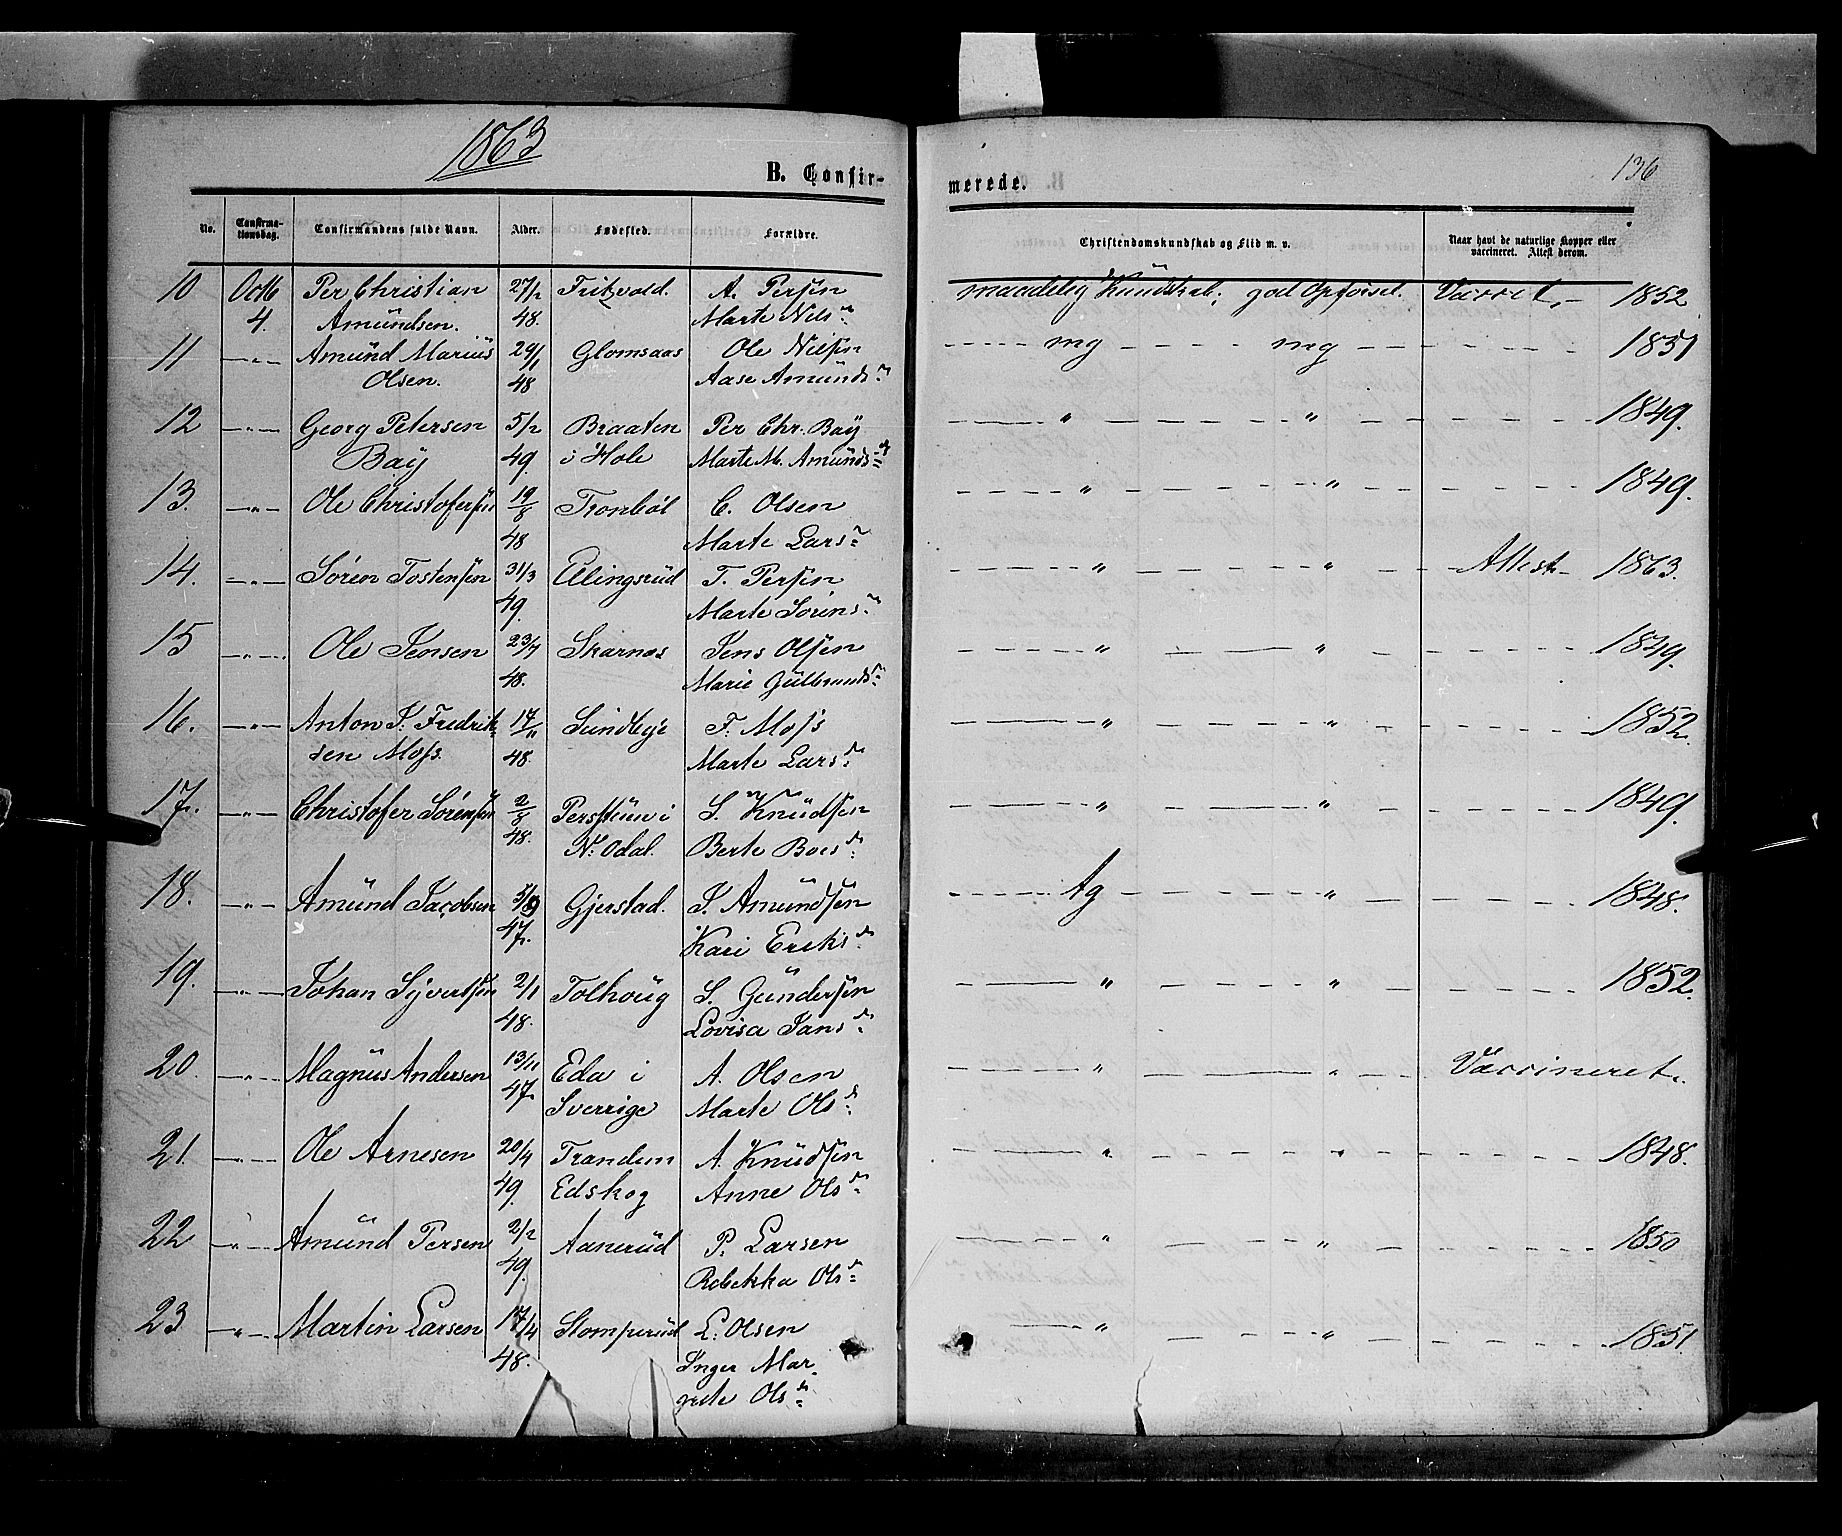 1863
B. Confir-
merede.
136
No.
Confirma-
tionsdag.
Confirmandens fulde Navn.
Alder.
Fødested.
Forældre.
Christendomskundskab og Flid m. v.
Naar havt de naturlige Kopper eller
vaccineret. Attest derom.
10 Octb Per Christian 27/2 Fritzvold. A. Persen maadelig Kundskab, god Opførsel. Vaccret, - 1852
4. Amundsen. 48. Marte Nilsn
11 -"- Amund Marius 29/1 Glomsaas Ole Nilsen - mg - mg - 1851
Olsen. 48 Aase Amundsn
12 -"- Georg Petersen 5/2 Braaten Per Chr. Bay - " - " - 1849.
Bay 49. i Hole Marte M. Amundsd
13. -"- Ole Christofersen 19/8 Tronbøl C. Olsen - " - " - 1849.
48 Marte Larsn
14. -"- Søren Tostensen 31/3 Ålingsrud T. Persen - " - " - Attest - 1863.
49. Marte Sørensn
15 -"- Ole Jensen 23/7 Skarnes Jens Olsen - " - " - 1849.
48. Marie Gulbrandsd
16. -"- Anton J. Fredrik- 17/11 Sundbye F. Moss - " - " - 1852.
sen Moss. 48. Marte Larsd
17. -"- Christofer Sørensen 2/8 Perstuen i S. Knudsen - " - " - 1849.
48. N. Odal. Berte Boesd
18. -"- Amund Jacobsen 3/9 Gjerstad. J. Amundsen - Tg - " - 1848.
47. Kari Eriksd
19. -"- Johan Syvertsen 2/1 Tolhoug S. Gundersen - " - " - 1852.
48. Lovisa Jansd
20. -"- Magnus Andersen 13/11 Eda i A. Olsen - " - " - Vaccineret.
47. Sverrige Marte Olsd
21. -"- Ole Arnesen 20/4 Trandem A. Knudsen - " - " - 1848.
49. Edskog Anne Olsd
22 -"- Amund Persen 2/2 Aanerud P. Larsen - " - " - 1850
49. Rebekka Olsd
23 -"- Martin Larsen 17/4 Stomperud L. Olsen - " - " - 1851.
48. Inger Mar-
grete Olsd